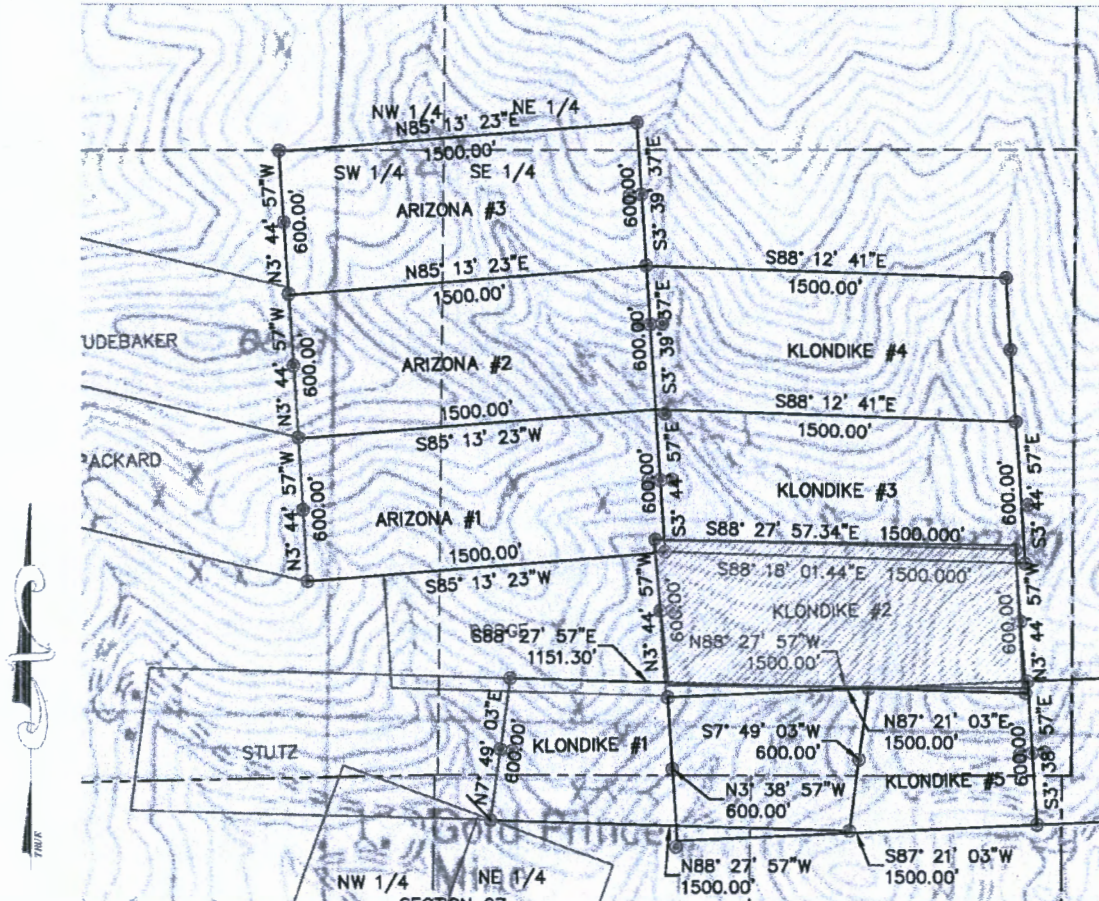 NW 1/4 NE 1/4
N85° 13' 23"E
1500.00'
SW 1/4 SE 1/4
N3° 44' 57"W
600.00'
ARIZONA #3
600.00'
S3° 39' 37"E
N85° 13' 23"E
1500.00'
S88° 12' 41"E
1500.00'
UDEBAKER
N3° 44' 57"W
600.00'
ARIZONA #2
600.00'
S3° 39' 37"E
KLONDIKE #4
1500.00'
S85° 13' 23"W
S88° 12' 41"E
1500.00'
PACKARD
N3° 44' 57"W
600.00'
ARIZONA #1
600.00'
S3° 44' 57"E
KLONDIKE #3
600.00'
S3° 44' 57"E
1500.00'
S85° 13' 23"W
S88° 27' 57.34"E 1500.000'
S88° 18' 01.44"E 1500.000'
N3° 44' 57"W
600.00'
KLONDIKE #2
600.00'
N3° 44' 57"W
S88° 27' 57"E
1151.30'
N88° 27' 57"W
1500.00'
STUTZ
N7° 49' 03"E
600.00'
KLONDIKE #1
S7° 49' 03"W
600.00'
N87° 21' 03"E
1500.00'
N3° 38' 57"W
600.00'
KLONDIKE #5
600.00'
S3° 38' 57"E
Gold Prince
Mine
N88° 27' 57"W
1500.00'
S87° 21' 03"W
1500.00'
NW 1/4 NE 1/4
SECTION 27
TRUE